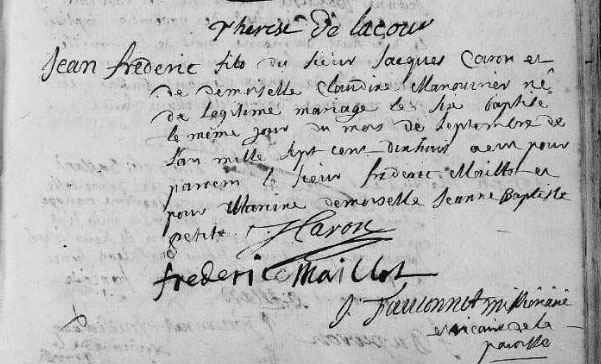 Therese de lacour
Jean frederic fils du sieur Jacques Caron et
de demoiselle Claudine Manourrier né
de legitime mariage le six baptisé
le même jour du mois de septembre de
l'an mille sept cent dixhuit a eu pour
parrein le sieur frederic Maillot et
pour Marine demoiselle Jeanne Baptiste
petite J Caron
frederic Maillot
J. Fauconnot
et vicaire de la
paroisse